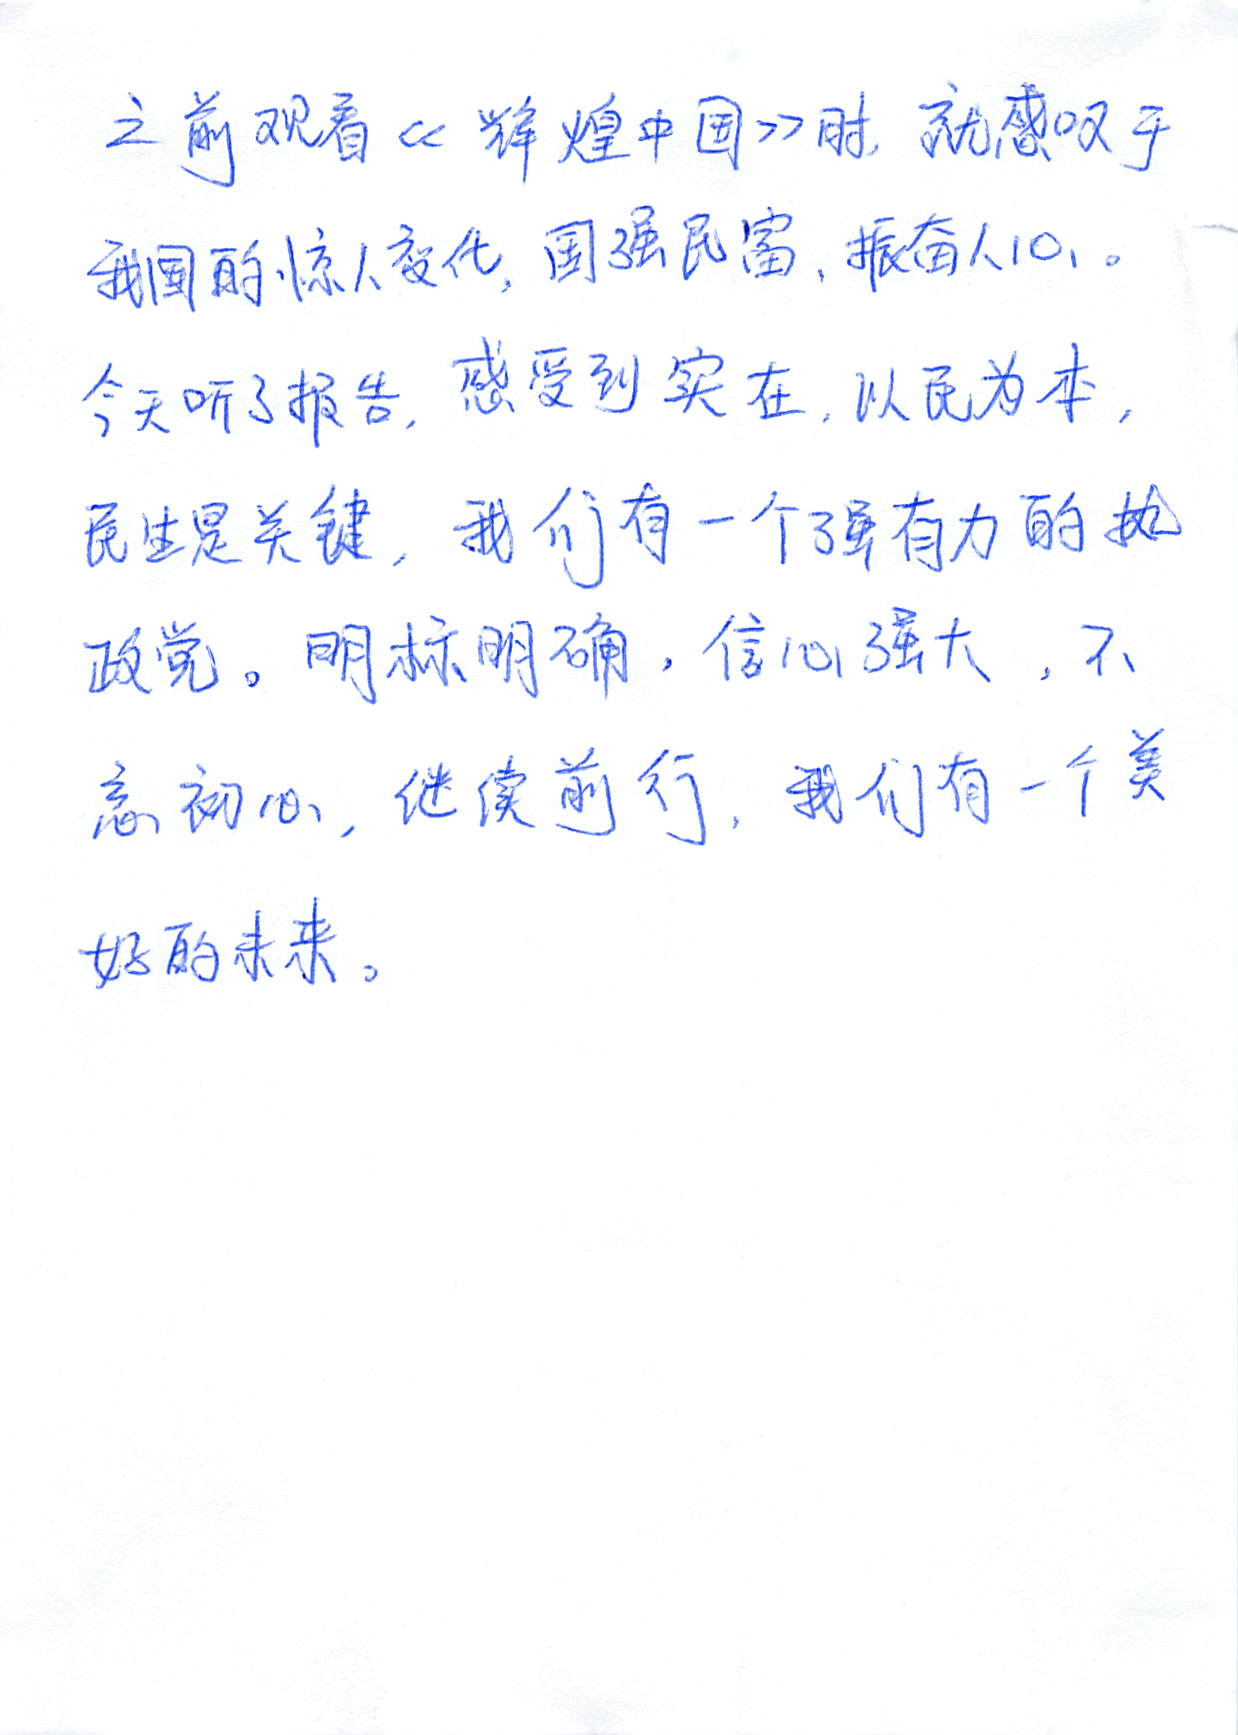 之前观看《辉煌中国》时,就感叹于
我国的惊人变化,国强民富,振奋人心。
今天听了报告,感受到实在,以民为本,
民生是关键,我们有一个强有力的执
政党。明标明确,信心强大,不
忘初心,继续前行,我们有一个美
好的未来。